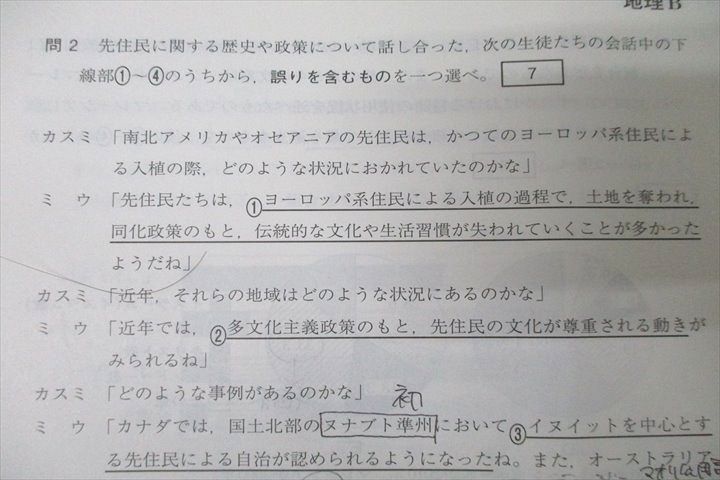 地理B
問2 先住民に関する歴史や政策について話し合った,次の生徒たちの会話中の下
線部①~④のうちから,誤りを含むものを一つ選べ。 7
カスミ「南北アメリカやオセアニアの先住民は,かつてのヨーロッパ系住民によ
る入植の際,どのような状況におかれていたのかな」
ミ ウ「先住民たちは,①ヨーロッパ系住民による入植の過程で,土地を奪われ,
同化政策のもと,伝統的な文化や生活習慣が失われていくことが多かった
ようだね」
カスミ「近年,それらの地域はどのような状況にあるのかな」
ミ ウ「近年では,②多文化主義政策のもと,先住民の文化が尊重される動きが
みられるね」
カスミ「どのような事例があるのかな」
初
ミ ウ「カナダでは,国土北部のヌナブト準州において③イヌイットを中心とす
る先住民による自治が認められるようになったね。また,オーストラリア
マオリ